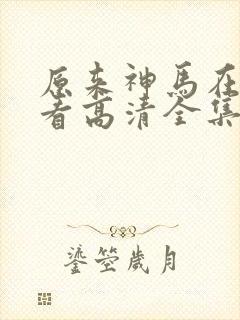 原来神马在
看高清全集
鎏莹岁月